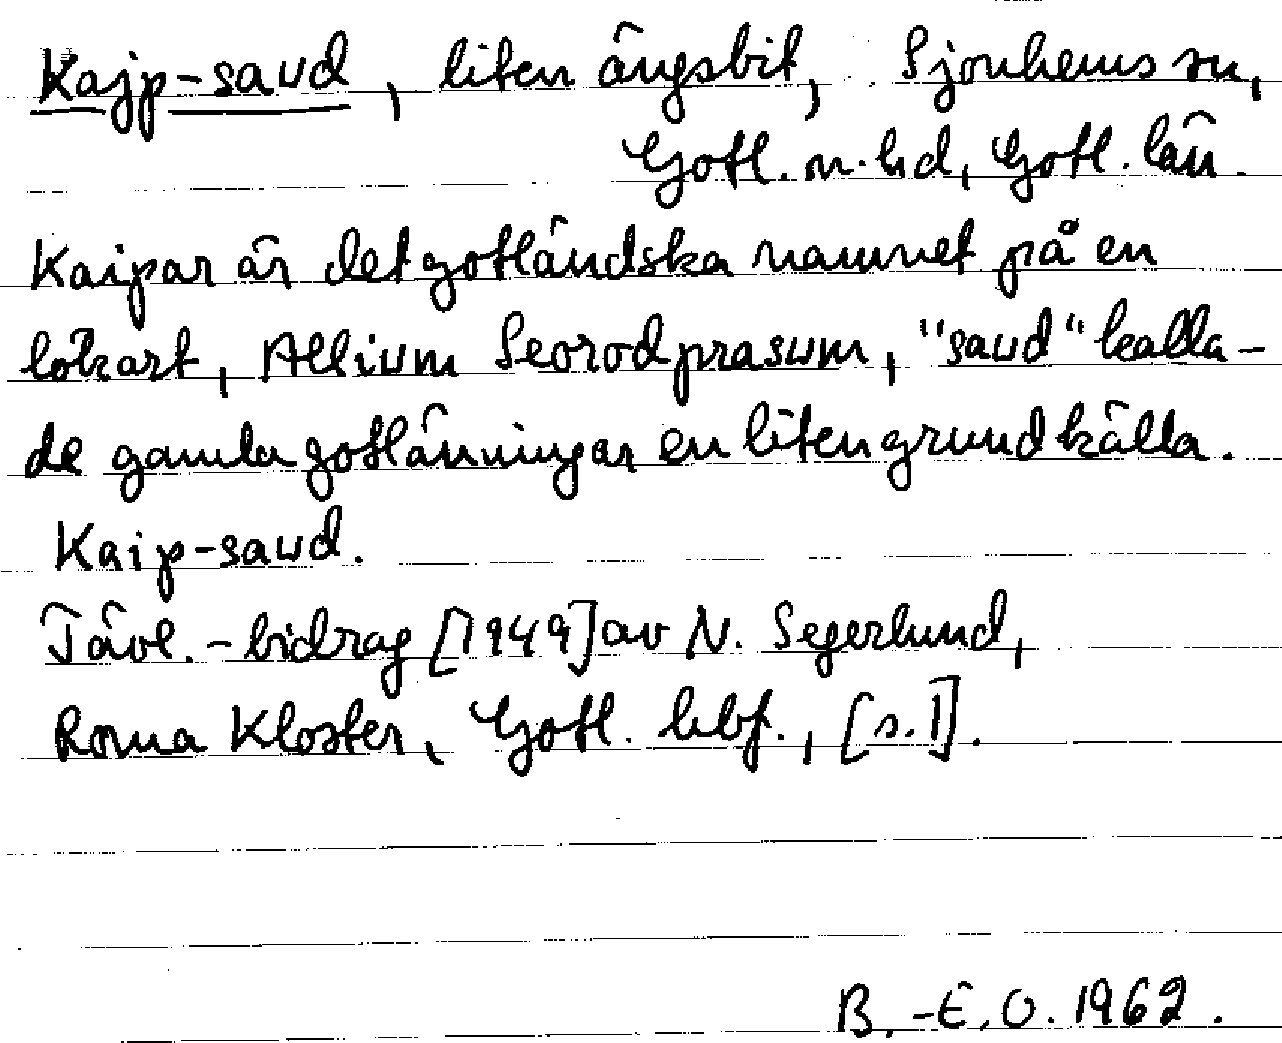 Kajp-saud, liten ängsbit, Sjonhems sn,
Gotl. n. hd, Gotl. län.
Kaipar är det gotländska namnet på en
lökart, Allium Scorodprasum, "saud" kalla-
de gamla gotlänningar en liten grundkälla.
Kaip-saud.
Tävl. - bidrag [1949] av N. Segerlund,
Roma Kloster, Gotl. hbf., [s. 1].
B.-E. O. 1962.